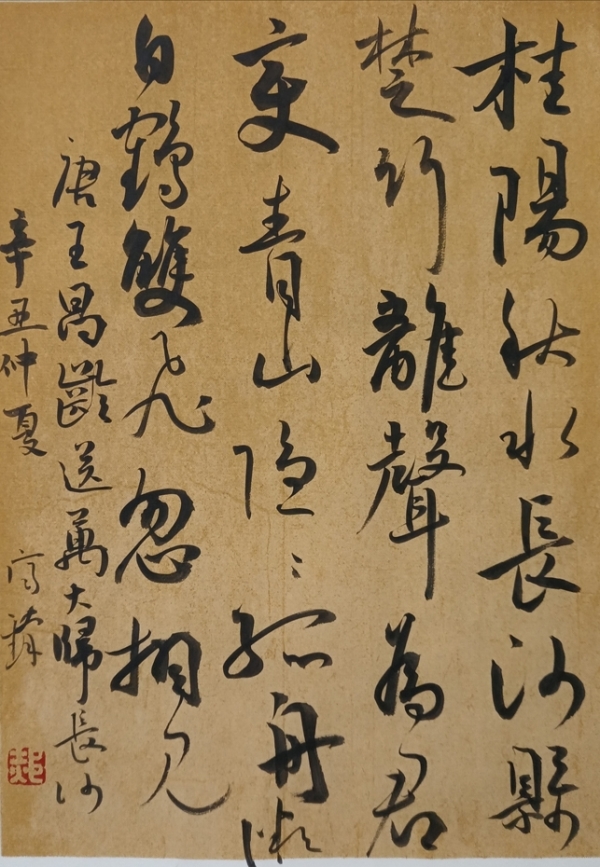 桂陽秋水長沙縣
楚竹離聲為君
变青山隐々孤舟微
白鶴雙飛忽相見
唐王昌齡送萬大歸長沙
辛丑仲夏 高